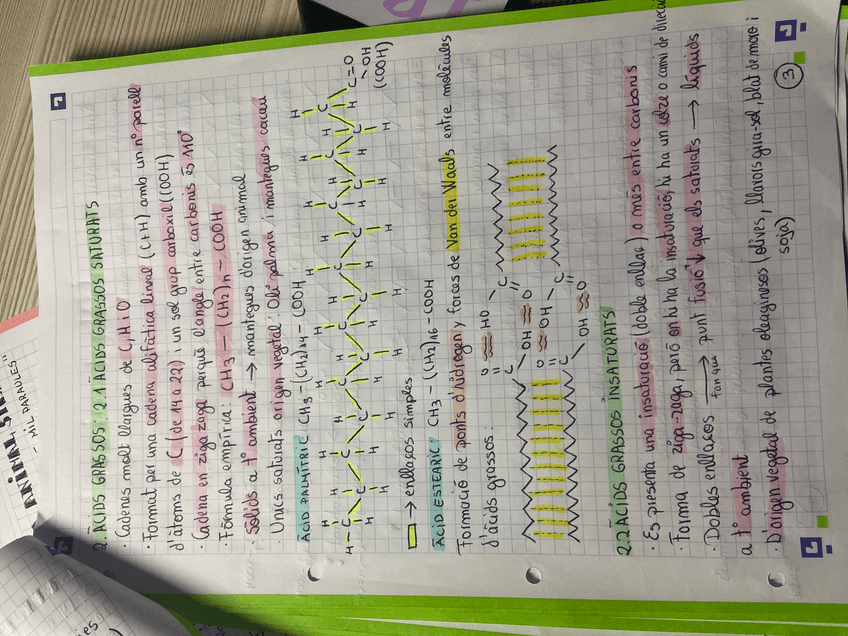 2. ÀCIDS GRASSOS: 2.1 ÀCIDS GRASSOS SATURATS
· Cadenas molt llargues de C, H i O
· Format per una cadena alifàtica lineal (C+H) amb un nº parell
d'àtoms de C (de 14 a 22) i un sol grup carboxil (COOH)
· Cadena en ziga zaga perquè l'angle entre carbonis és 110°
· Fórmula empírica: CH3 – (CH2)n – COOH
· Sòlids a tº ambient → mantegues d'origen animal
· Unics saturats origen vegetal: Oli palma i mantegues cacau
ÀCID PALMÍTRIC CH3 – (CH2)14 – COOH
H – C C C C C C C C C C C C C C C C = O
H H H H H H H H H H H H H H H H
OH
(COOH)
→ enllaços simples
ÀCID ESTEARIC: CH3 – (CH2)16 – COOH
Formació de ponts d'hidrogen y forces de Van der Waals entre molècules
d'àcids grassos:
C O HO C
OH O
C O OH C
OH O
2.2 ÀCIDS GRASSOS INSATURATS
· Es presenta una insaturació (doble enllaç) o més entre carbonis
· Forma de ziga-zaga, però on hi ha la insaturació, hi ha un colze o canvi de direcció
· Dobles enllaços → fan que punt fusió ↓ que els saturats → líquids
a tº ambient
· D'origen vegetal de plantes oleaginoses (olives, llavors gira-sol, blat de moro i
soja)
3
ANIMAL
– MIL PARAULES"